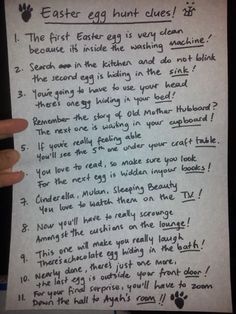 Easter egg hunt clues!
1. The first Easter egg is very clean
because its inside the washing machine!
2. Search in the kitchen and do not blink
the second egg is hiding in the sink!
3. You're going to have to use your head
there's one egg hiding in your bed!
4. Remember the story of Old Mother Hubbard?
The next one is waiting in your cupboard!
5. If you're really feeling able
You'll see the 5th one under your craft table.
6. You love to read, so make sure you look
For the next egg is widden inyour books!
7. Cinderella, Mulan, Sleeping Beauty
You love to watch them on the TV!
8. Now you'll have to really scrounge
Amongst the cushions on the lounge!
9. This one will make you really laugh
There's a chocolate egg hiding in the bath!
10. Nearly done, there's just one more,
the last egg is outside your front door!
11. For your final surprise, you'll have to zoom
Down the hall to Ayah's room!!